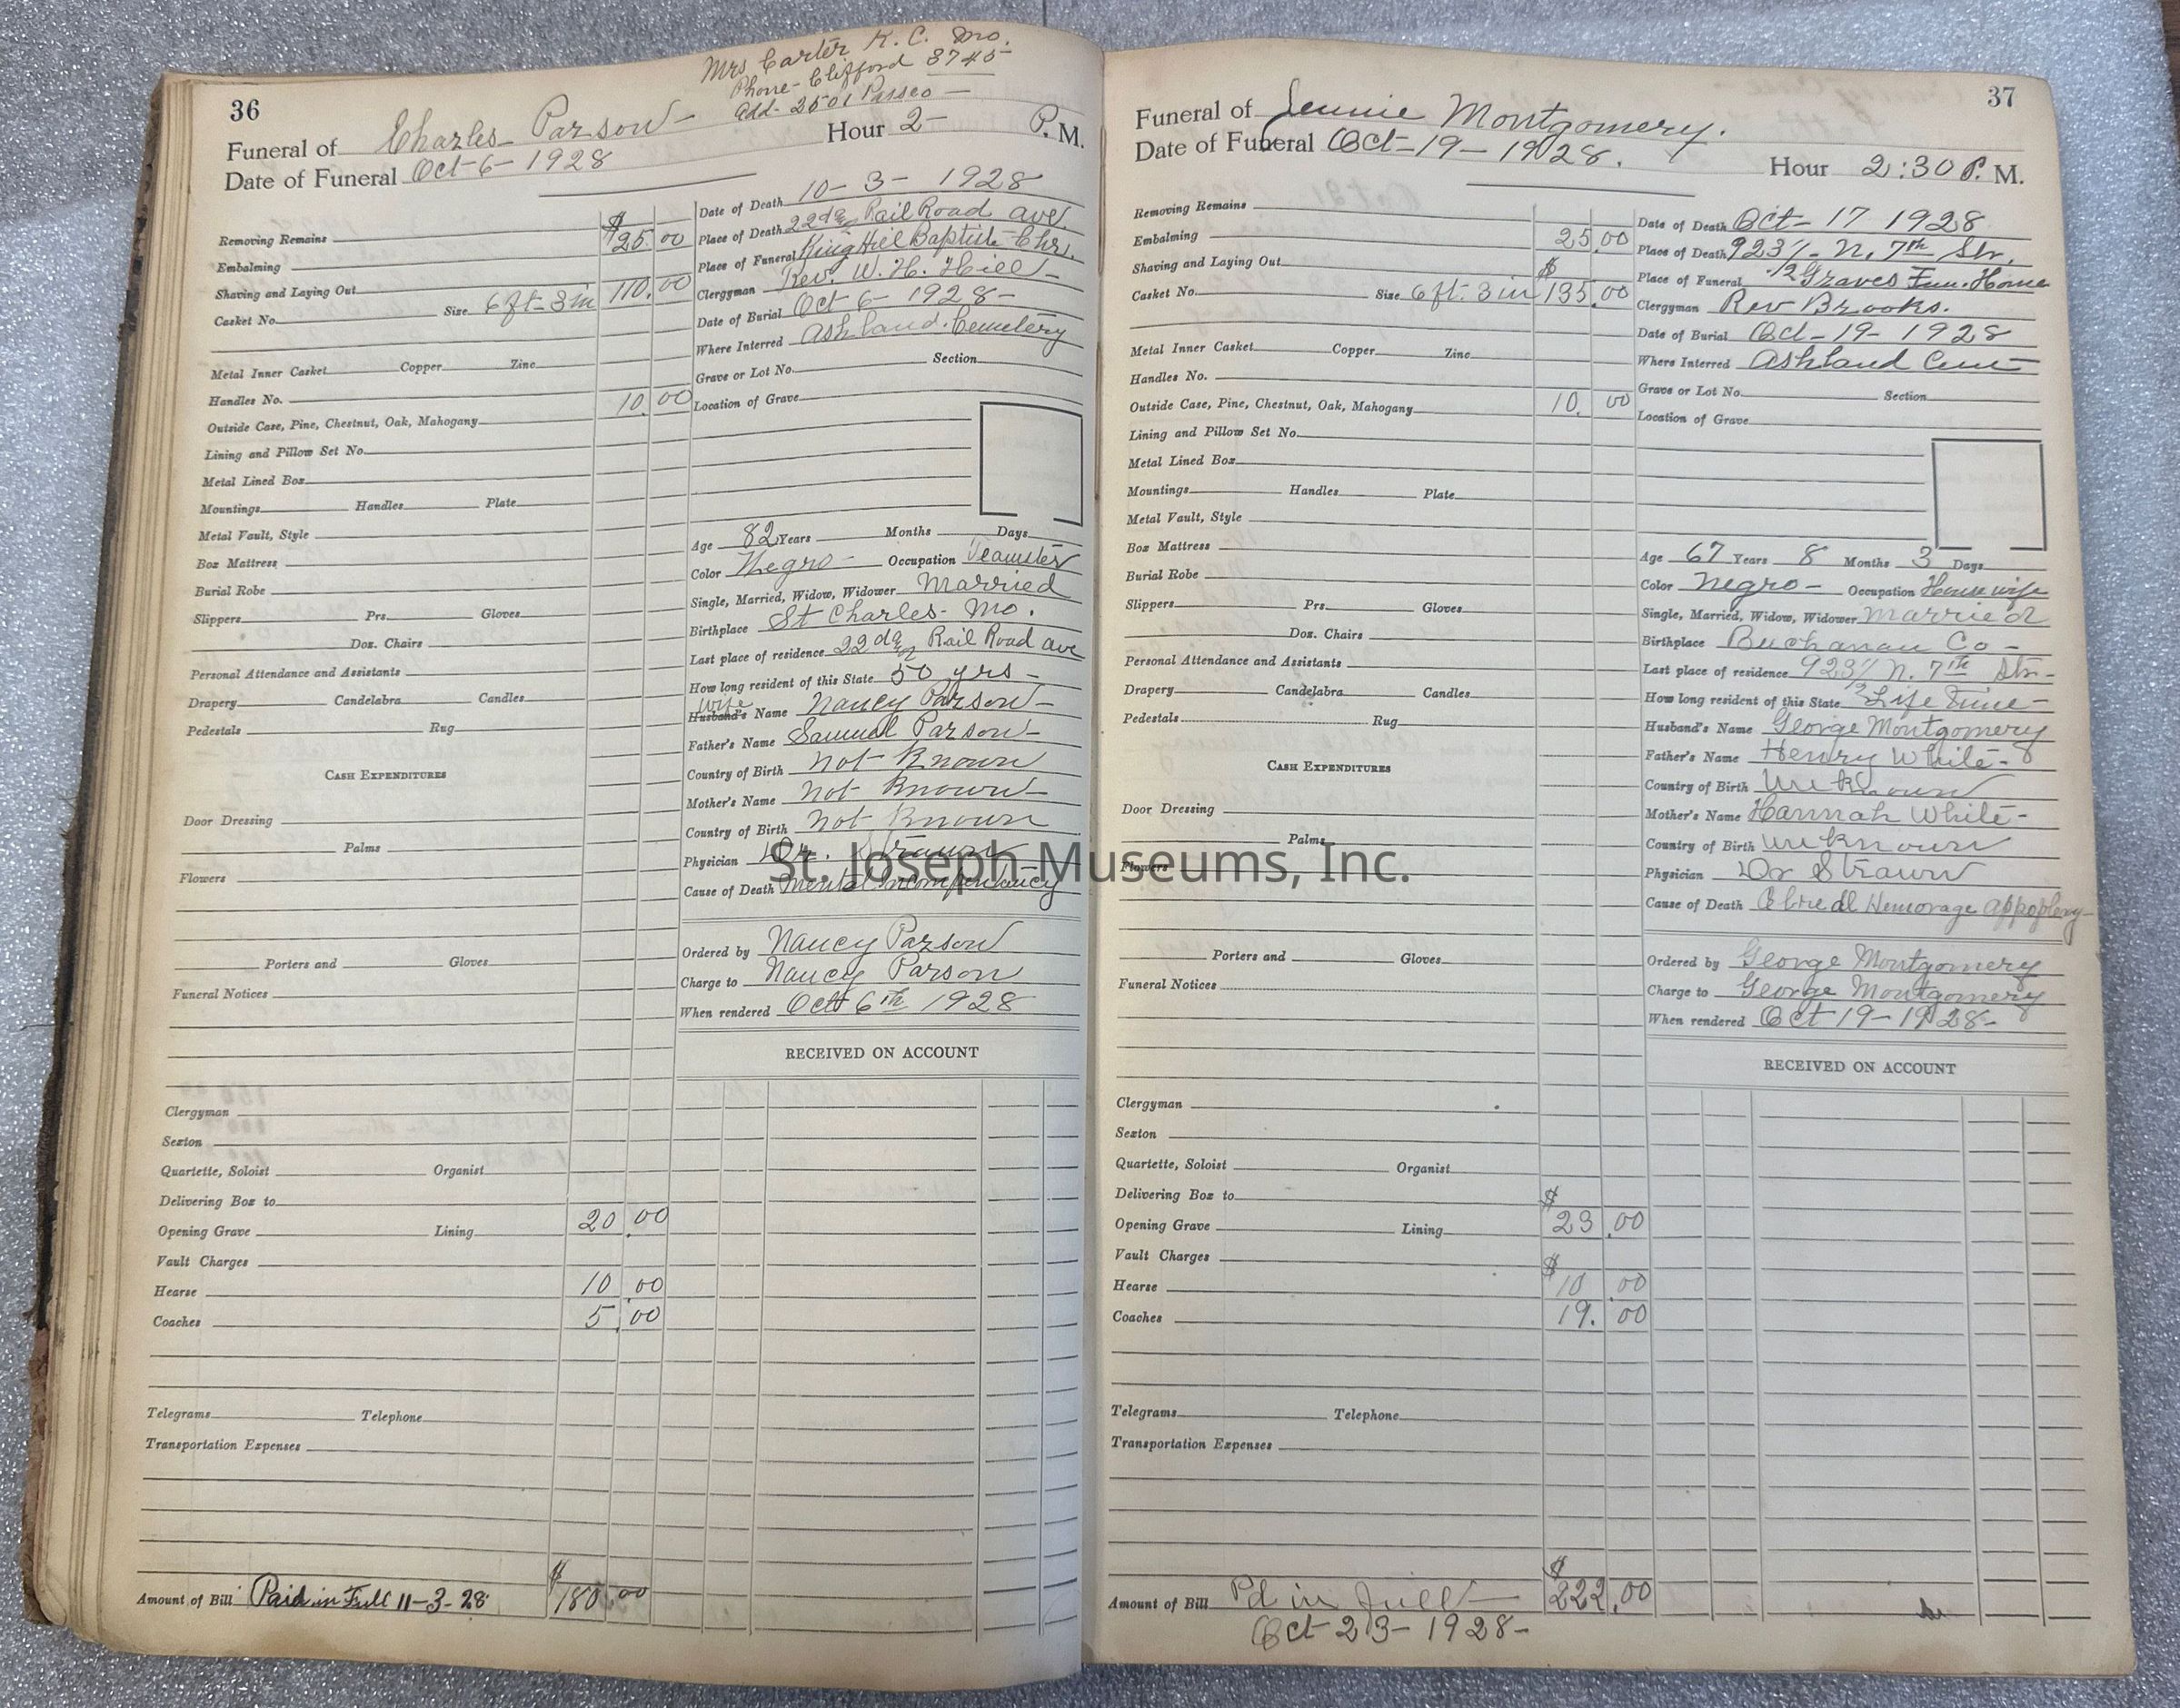 Mrs Carter K. C. Mo.
Phone- Clifford 8745-
Add- 2501 Passeo -
36
Funeral of Charles Parson - Hour 2- P. M.
Date of Funeral Oct-6-1928
Removing Remains $
Embalming 25.00
Shaving and Laying Out
Casket No. Size 6 ft-3in 110.00
Metal Inner Casket Copper Zinc
Handles No.
Outside Case, Pine, Chestnut, Oak, Mahogany 10.00
Lining and Pillow Set No.
Metal Lined Box
Mountings Handles Plate
Metal Vault, Style
Box Mattress
Burial Robe
Slippers Prs. Gloves
Doz. Chairs
Personal Attendance and Assistants
Drapery Candelabra Candles
Pedestals Rug
CASH EXPENDITURES
Door Dressing
Palms
Flowers
Porters and Gloves
Funeral Notices
Clergyman
Sexton
Quartette, Soloist Organist
Delivering Box to
Opening Grave Lining 20.00
Vault Charges
Hearse 10.00
Coaches 5.00
Telegrams Telephone
Transportation Expenses
Amount of Bill Paid in Full 11-3-28 $180.00
Date of Death 10-3-1928
Place of Death 22d Rail Road ave.
Place of Funeral King Hill Baptist Chr.
Clergyman Rev. W. H. Hill-
Date of Burial Oct 6-1928-
Where Interred Ashland. Cemetery
Grave or Lot No. Section
Location of Grave
Age 82 Years Months Days
Color Negro- Occupation Teamster
Single, Married, Widow, Widower Married
Birthplace St Charles- Mo.
Last place of residence 22d Rail Road ave
How long resident of this State 50 yrs-
wife
Husband's Name Nancy Parson-
Father's Name Samuel Parson-
Country of Birth not Known
Mother's Name not Known-
Country of Birth not Known
Physician Dr. Strawn
Cause of Death Mental Incompentancy
Ordered by Nancy Parson
Charge to Nancy Parson
When rendered Oct 6th 1928
RECEIVED ON ACCOUNT
37
Funeral of Jennie Montgomery.
Date of Funeral Oct-19-1928. Hour 2:30 P. M.
Removing Remains
Embalming 25.00
Shaving and Laying Out $
Casket No. Size 6 ft. 3 in 135.00
Metal Inner Casket Copper Zinc
Handles No.
Outside Case, Pine, Chestnut, Oak, Mahogany 10.00
Lining and Pillow Set No.
Metal Lined Box
Mountings Handles Plate
Metal Vault, Style
Box Mattress
Burial Robe
Slippers Prs. Gloves
Doz. Chairs
Personal Attendance and Assistants
Drapery Candelabra Candles
Pedestals Rug
CASH EXPENDITURES
Door Dressing
Palms
Flowers
Porters and Gloves
Funeral Notices
Clergyman
Sexton
Quartette, Soloist Organist
Delivering Box to $
Opening Grave Lining 23.00
Vault Charges $
Hearse 10.00
Coaches 19.00
Telegrams Telephone
Transportation Expenses
Amount of Bill Pd in full- $222.00
Oct 23-1928-
Date of Death Oct-17 1928
Place of Death 923 1/2 N. 7th Str.
Place of Funeral Graves Fun. Home
Clergyman Rev Brooks.
Date of Burial Oct-19-1928
Where Interred Ashland Cem
Grave or Lot No. Section
Location of Grave
Age 67 Years 8 Months 3 Days
Color Negro- Occupation Housewife
Single, Married, Widow, Widower Married
Birthplace Buchanan Co-
Last place of residence 923 1/2 N. 7th Str-
How long resident of this State Life Time-
Husband's Name George Montgomery
Father's Name Henry White-
Country of Birth unknown
Mother's Name Hannah White-
Country of Birth unknown
Physician Dr Strawn
Cause of Death Hemorage appoplexy
Ordered by George Montgomery
Charge to George Montgomery
When rendered Oct 19-1928-
RECEIVED ON ACCOUNT
St. Joseph Museums, Inc.